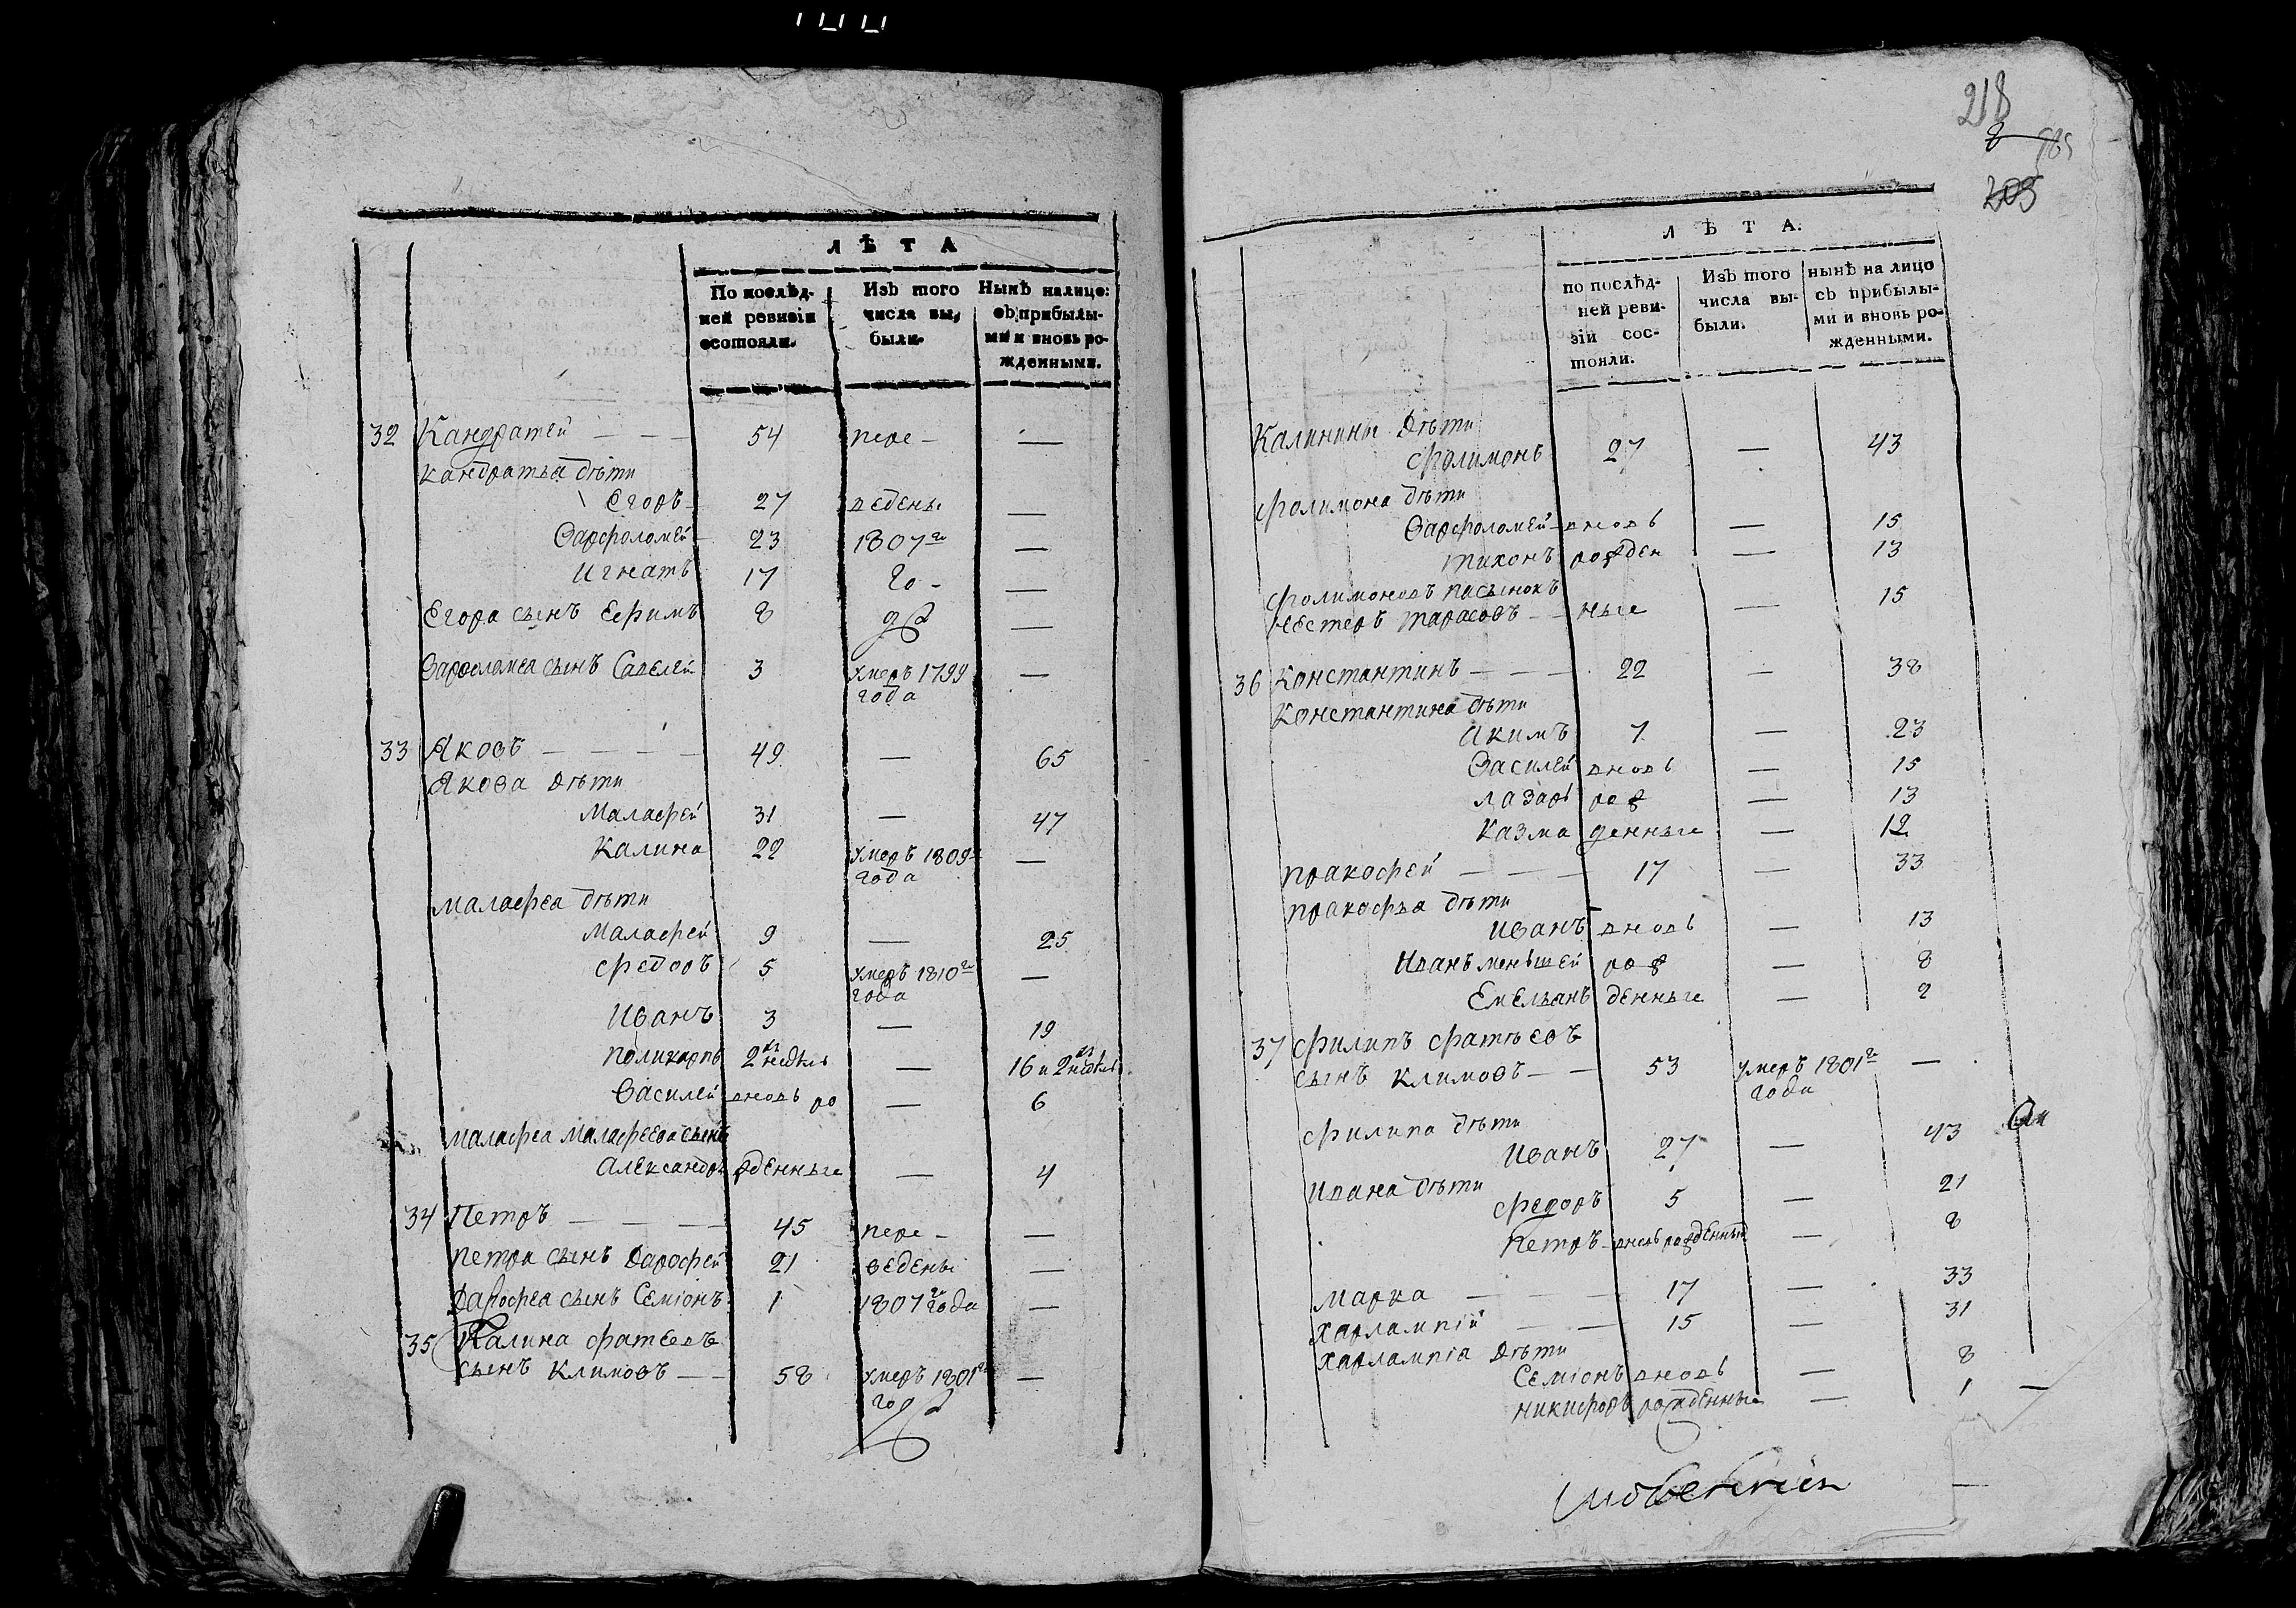 ЛѢТА
По послѣд-
ней ревизіи
состояли.
Изъ того
числа вы-
были.
Нынѣ на лице:
съ прибылы-
ми и вновь ро-
жденными.
32 Кандратей — — — 54 пере- —
Кандратьа дѣти
Егоръ 27 ведены —
Варфоломей 23 1807го —
Игнатъ 17 го- —
Егора сынъ Ефимъ 8 да —
Варфоломеа сынъ Савелей 3 умеръ 1799 —
года
33 Яковъ — — — — 49 — 65
Якова дѣти
Малафей 31 — 47
Калина 22 умеръ 1809го —
года
Малафеа дѣти
Малафей 9 — 25
Федоръ 5 умеръ 1810го —
года
Иванъ 3 — 19
Поликарпъ 2хъ недѣль — 16 и 2хъ недѣль
Василей вновь ро — 6
Малафеа Малафеева сынъ
Александръ жденные — 4
34 Петръ — — — — 45 пере- —
Петра сынъ Дарофей 21 ведены —
Дарофеа сынъ Семіонъ 1 1807го года —
35 Калина Фатеевъ
сынъ Климовъ — — 58 умеръ 1801го —
года
218
8
205
ЛѢТА.
по послѣд-
ней реви-
зіи сос-
тояли.
Изъ того
числа вы-
были.
нынѣ на лицо
съ прибылы-
ми и вновь ро-
жденными.
Калинины дѣти
Филимонъ 27 — 43
Филимона дѣти
Варфоломей вновь — 15
Тихонъ рожден — 13
Филимоновъ пасынокъ
Нестеръ Тарасовъ — ные — 15
36 Константинъ — — — 22 — 38
Константина дѣти
Акимъ 7 — 23
Василей вновь — 15
Лазарь рож — 13
Казма денные — 12
Пракофей — — — 17 — 33
Пракофьа дѣти
Иванъ вновь — 13
Иванъ меньшей рож — 8
Емельанъ денные — 2
37 Филипъ Фатѣевъ
сынъ Климовъ — — 53 умеръ 1801го —
года
Филипа дѣти
Иванъ 27 — 43
Ивана дѣти
Федоръ 5 — 21
Петръ вновь рожденный — 8
Марка — — — 17 — 33
Харлампій — — 15 — 31
Харлампіа дѣти
Семіонъ вновь — 8
Никифоръ рожденные — 1